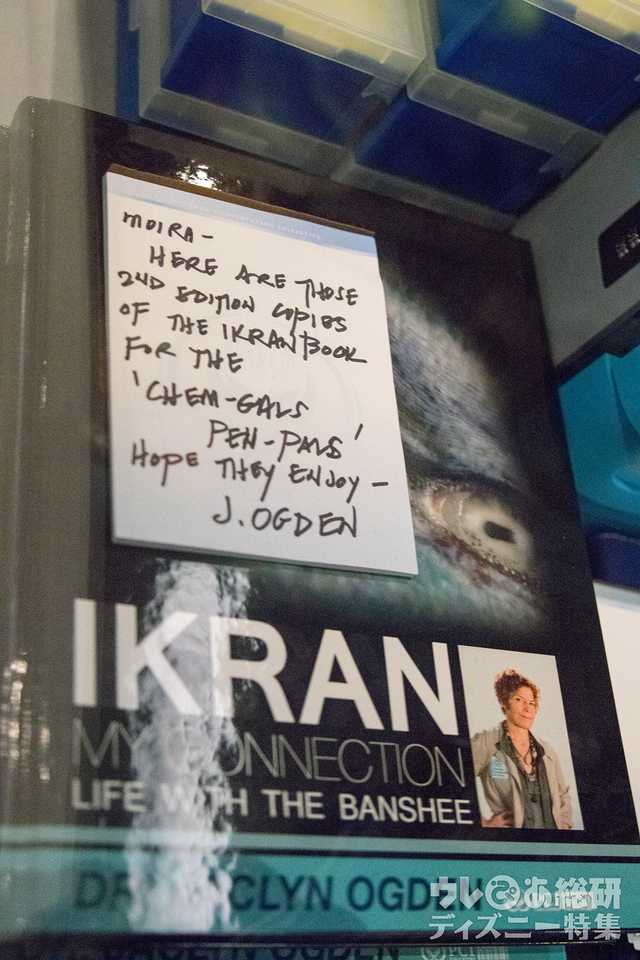 MOIRA-
HERE ARE THOSE
2ND EDITION COPIES
OF THE IKRAN BOOK
FOR THE
'CHEM-GALS
PEN-PALS'
HOPE THEY ENJOY -
J. OGDEN
IKRAN
MY CONNECTION
LIFE WITH THE BANSHEE
JACLYN OGDEN
ウレぴあ総研
ディズニー特集
JACLYN OGDEN